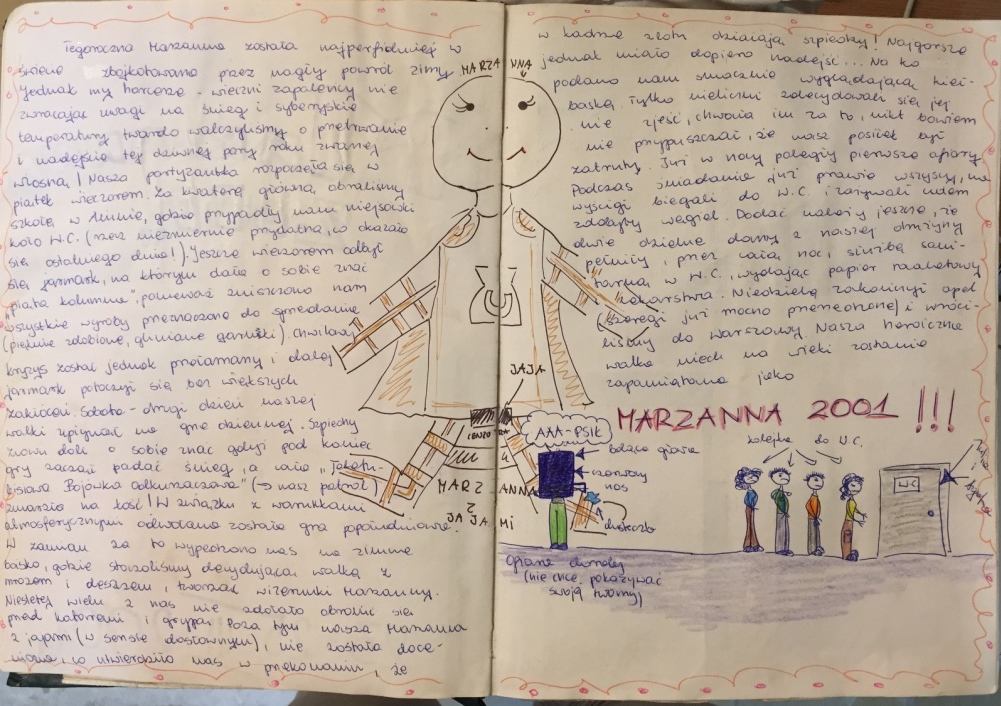 Tegoroczna Marzanna została najperfidniej w
świecie zbojkotowana przez nagły powrót zimy.
Jednak my harcerze - wieczni zapaleńcy nie
zwracając uwagi na śnieg i syberyjskie
temperatury twardo walczyliśmy o przetrwanie
i nadejście tej dziwnej pory roku zwanej
wiosną! Nasza partyzantka rozpoczęła się w
piątek wieczorem. Za kwaterę główną obraliśmy
szkołę w gdzie przypadły nam miejscówki
koło W.C. (rzecz niezmiernie przydatna, co okazało
się ostatniego dnia!). Jeszcze wieczorem odbył
się jarmark, na którym dała o sobie znać
"piąta kolumna", ponieważ zniszczono nam
wszystkie wyroby przeznaczone do sprzedania
(pięknie zdobione, gliniane garnuszki). Chwilowy
kryzys został jednak przełamany i dalej
jarmark potoczył się bez większych
zakłóceń. Sobota - drugi dzień naszej
walki upłynął na grze dziennej. Szpiedzy
znowu dali o sobie znać gdyż pod koniec
gry zaczął padać śnieg, a cała
Bojówka Odkurzaczowa" (→ nasz patrol)
zmarzła na kość! W związku z warunkami
atmosferycznymi odwołana została gra popołudniowa.
W zamian za to wypędzono nas na zimne
boisko, gdzie stoczyliśmy decydującą walkę z
mrozem i deszczem, tworząc wizerunki Marzanny.
Niestety wielu z nas nie zdołało obronić się
przed katarem i grypą. Poza tym nasza Marzanna
z jajami (w sensie dosłownym), nie została doce-
niona, co utwierdziło nas w przekonaniu, że
MARZANNA
JAJA
MARZANNA
Z
JAJAMI
w kadrze złotu działają szpiedzy! Najgorsze
jednak miało dopiero nadejść... Na
podano nam smacznie wyglądającą kieł-
baskę. Tylko nieliczni zdecydowali się jej
nie zjeść, chwała im za to, nikt bowiem
nie przypuszczał, że nasz posiłek był
zatruty. Już w nocy polegly pierwsze ofiary.
Podczas śniadania już prawie wszyscy, na
wyścigi biegali do W.C. i zażywali cudem
zdobyty węgiel. Dodać należy jeszcze, że
dwie dzielne damy z naszej drużyny
pełniły, przez całą noc, służbę sani-
tarną w W.C., wydając papier toaletowy
i lekarstwa. Niedzielę zakończył apel
(szeregi już mocno przerzedzone) i wróci-
liśmy do Warszawy. Nasza heroiczna
walka niech na wieki zostanie
zapamiętana jako
MARZANNA 2001 !!!
AAA-PSIK
bolące gardło
czerwony
nos
chusteczka
kolejka do W.C.
WC
Opiane choroby
(nie chce pokazywać
swojej twarzy)